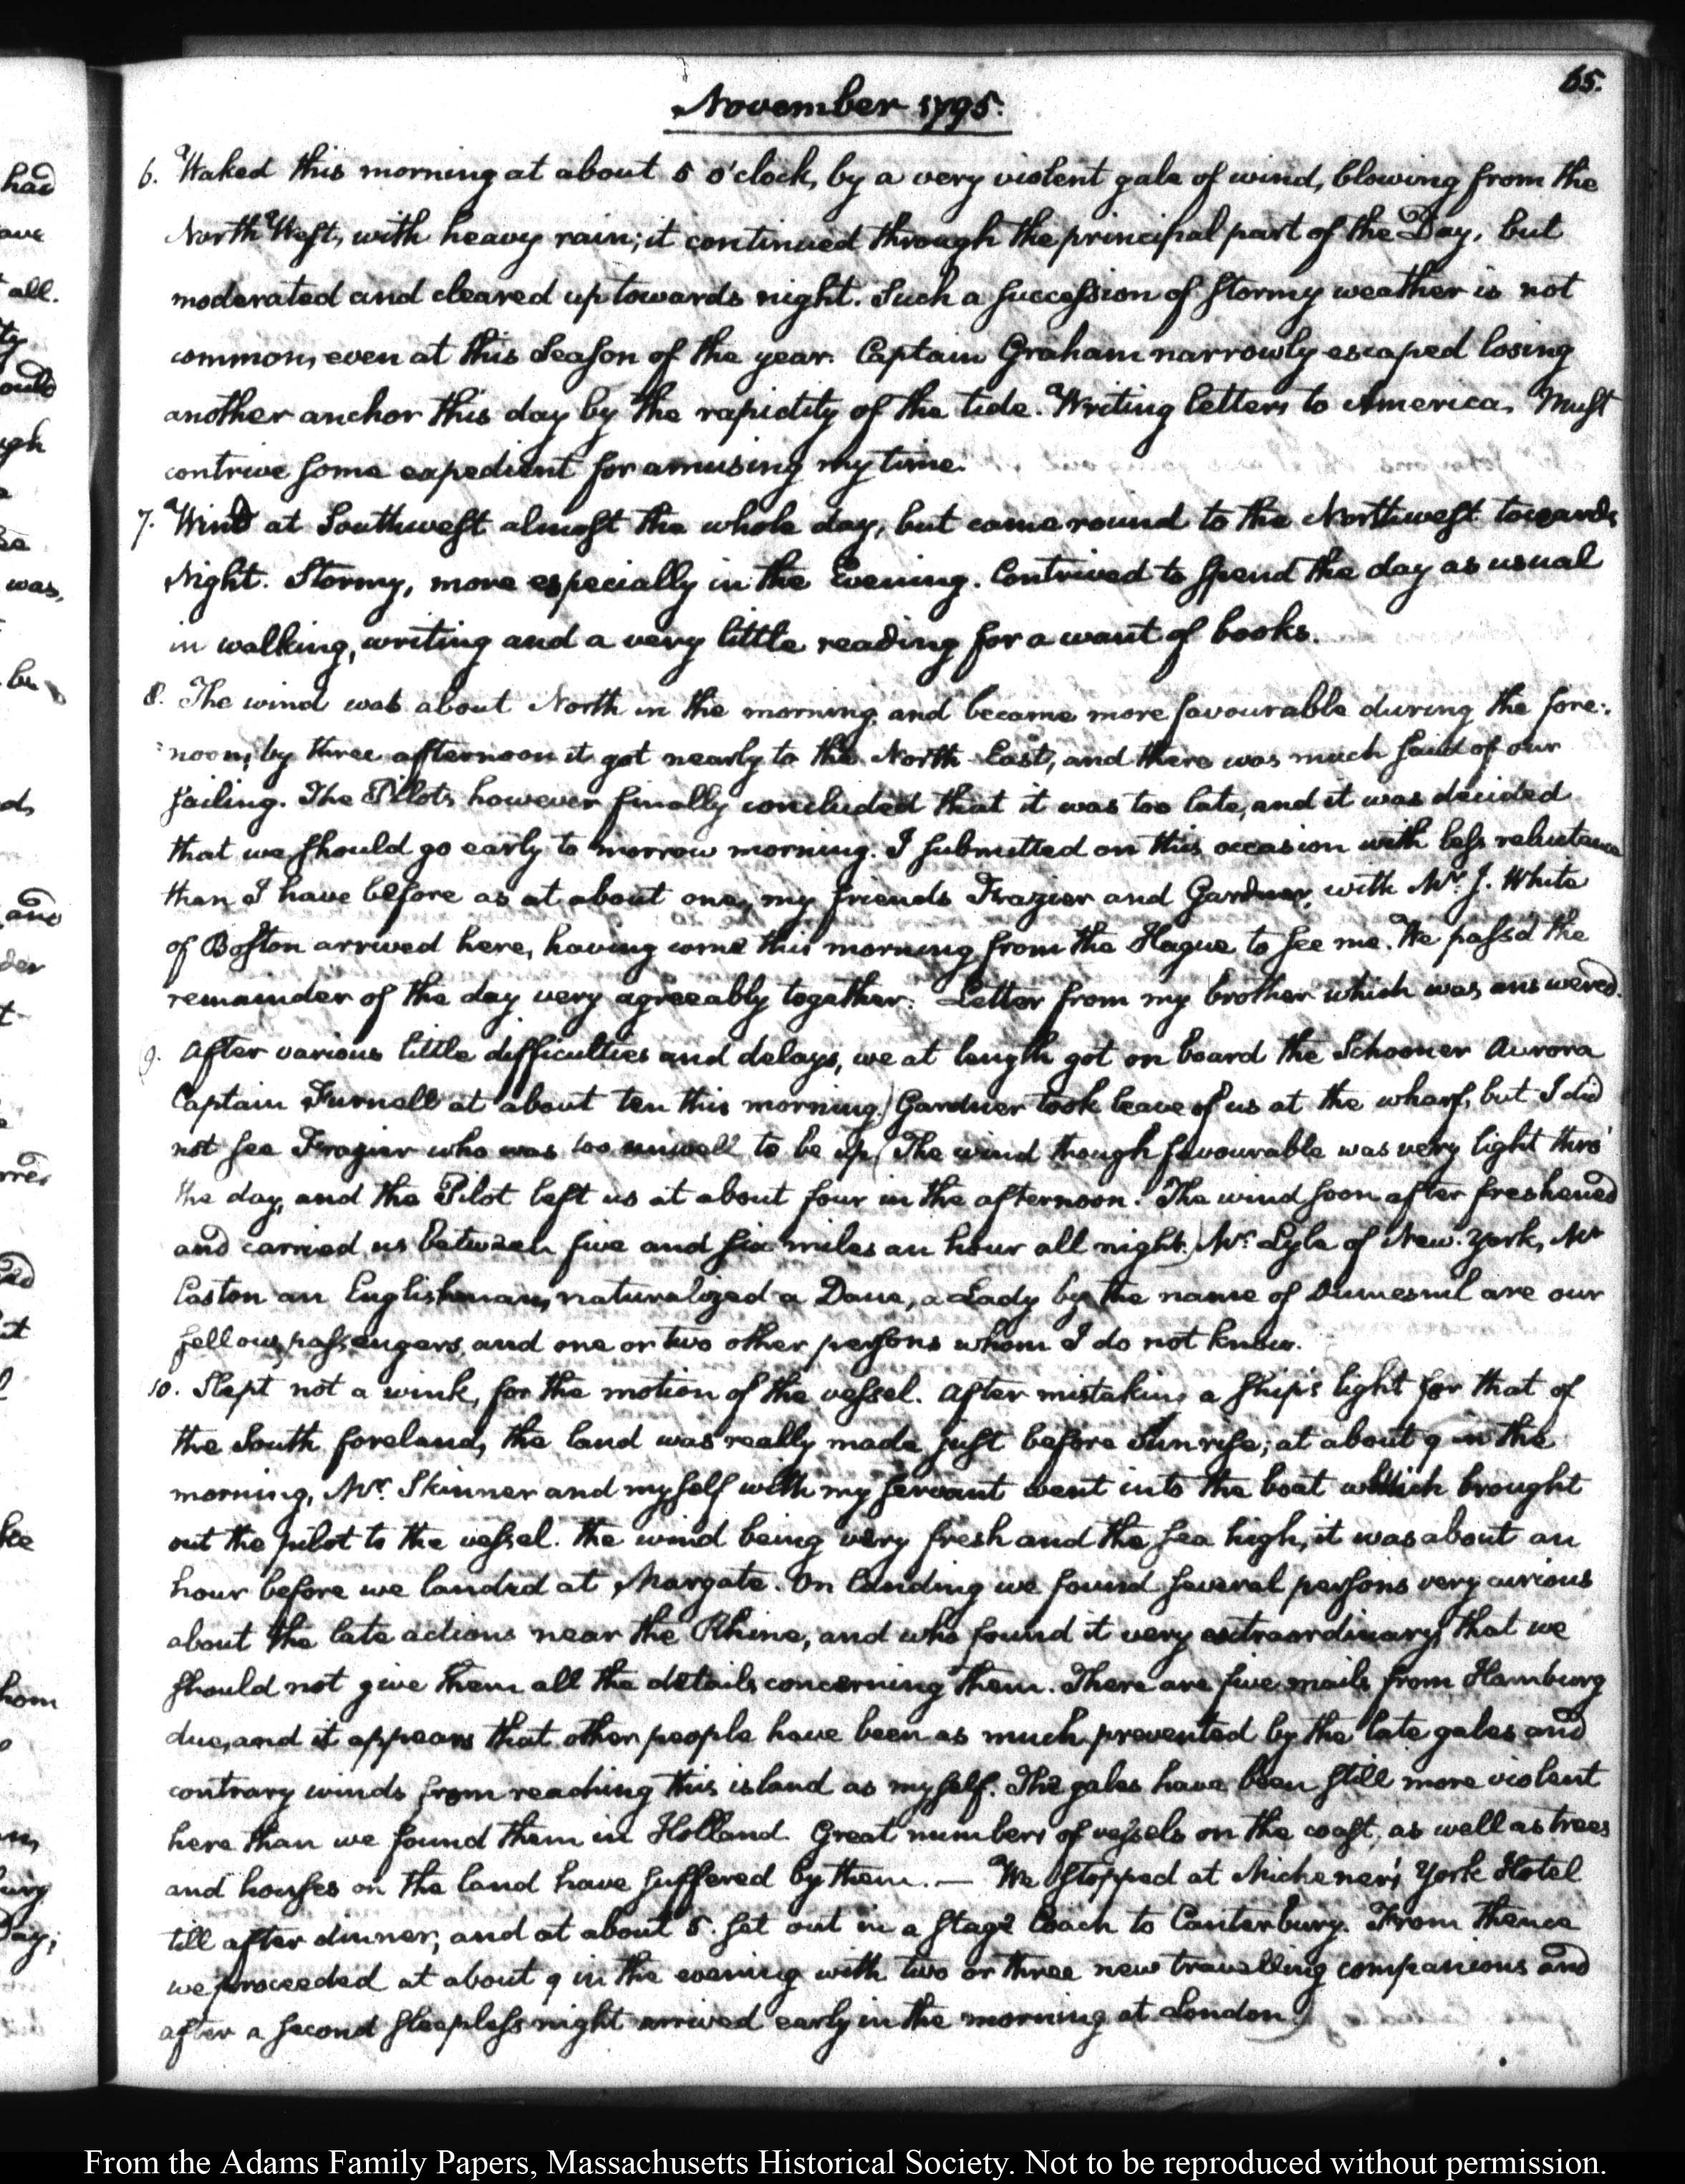 65.
November 1795.
6. Waked this morning at about 5 o'clock, by a very violent gale of wind, blowing from the
North West, with heavy rain; it continued through the principal part of the Day, but
moderated and cleared up towards night. Such a succession of stormy weather is not
common, even at this Season of the year. Captain Graham narrowly escaped losing
another anchor this day by the rapidity of the tide. Writing letters to America. Must
contrive some expedient for amusing my time.
7. Wind at Southwest almost the whole day, but came round to the Northwest towards
Night. Stormy, more especially in the Evening. Contrived to spend the day as usual
in walking, writing and a very little reading for a want of books.
8. The wind was about North in the morning and became more favourable during the fore:
:noon, by three afternoon it got nearly to the North East, and there was much said of our
sailing. The Pilots however finally concluded that it was too late, and it was decided
that we should go early to morrow morning. I submitted on this occasion with less reluctance
than I have before as at about one, my friends Frazier and Gardner, with Mr. J. White
of Boston arrived here, having come this morning from the Hague to see me. We pass'd the
remainder of the day very agreeably together. Letter from my brother which was answered.
9. After various little difficulties and delays, we at length got on board the Schooner Aurora
Captain Furnell at about ten this morning. Gardner took leave of us at the wharf, but I did
not see Frazier who was too unwell to be up. The wind though favourable was very light thro'
the day, and the Pilot left us at about four in the afternoon. The wind soon after freshened
and carried us between five and six miles an hour all night. Mr. Lyle of New-York, Mr
Easton an Englishman, naturalized a Dane, a Lady by the name of Dumesnil are our
fellow passengers and one or two other persons whom I do not know.
10. Slept not a wink, for the motion of the vessel. After mistaking a ship's light for that of
the South foreland, the land was really made just before Sunrise; at about 9 in the
morning, Mr. Skinner and myself with my servant went into the boat which brought
out the pilot to the vessel. The wind being very fresh and the sea high, it was about an
hour before we landed at Margate. On landing we found several persons very curious
about the late actions near the Rhine, and who found it very extraordinary that we
should not give them all the details concerning them. There are five mails from Hamburg
due, and it appears that other people have been as much prevented by the late gales and
contrary winds from reaching this island as myself. The gales have been still more violent
here than we found them in Holland. Great numbers of vessels on the coast, as well as trees
and houses on the land have suffered by them. — We stopped at Michener's York Hotel
till after dinner, and at about 5. set out in a stage Coach to Canterbury. From thence
we proceeded at about 9 in the evening with two or three new travelling companions and
after a second sleepless night arrived early in the morning at London.
From the Adams Family Papers, Massachusetts Historical Society. Not to be reproduced without permission.